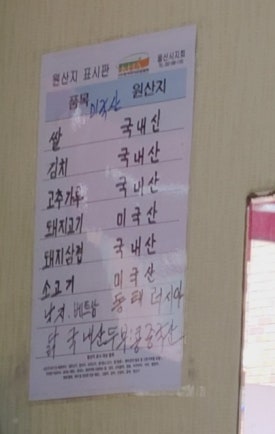 원산지 표시판
울산시지회
품목 원산지
미국산
쌀 국내산
김치 국내산
고추가루 국내산
돼지고기 미국산
돼지삼겹 국내산
소고기 미국산
낙지.베트남 동태 러시아
닭 국내산 두부콩 중국산